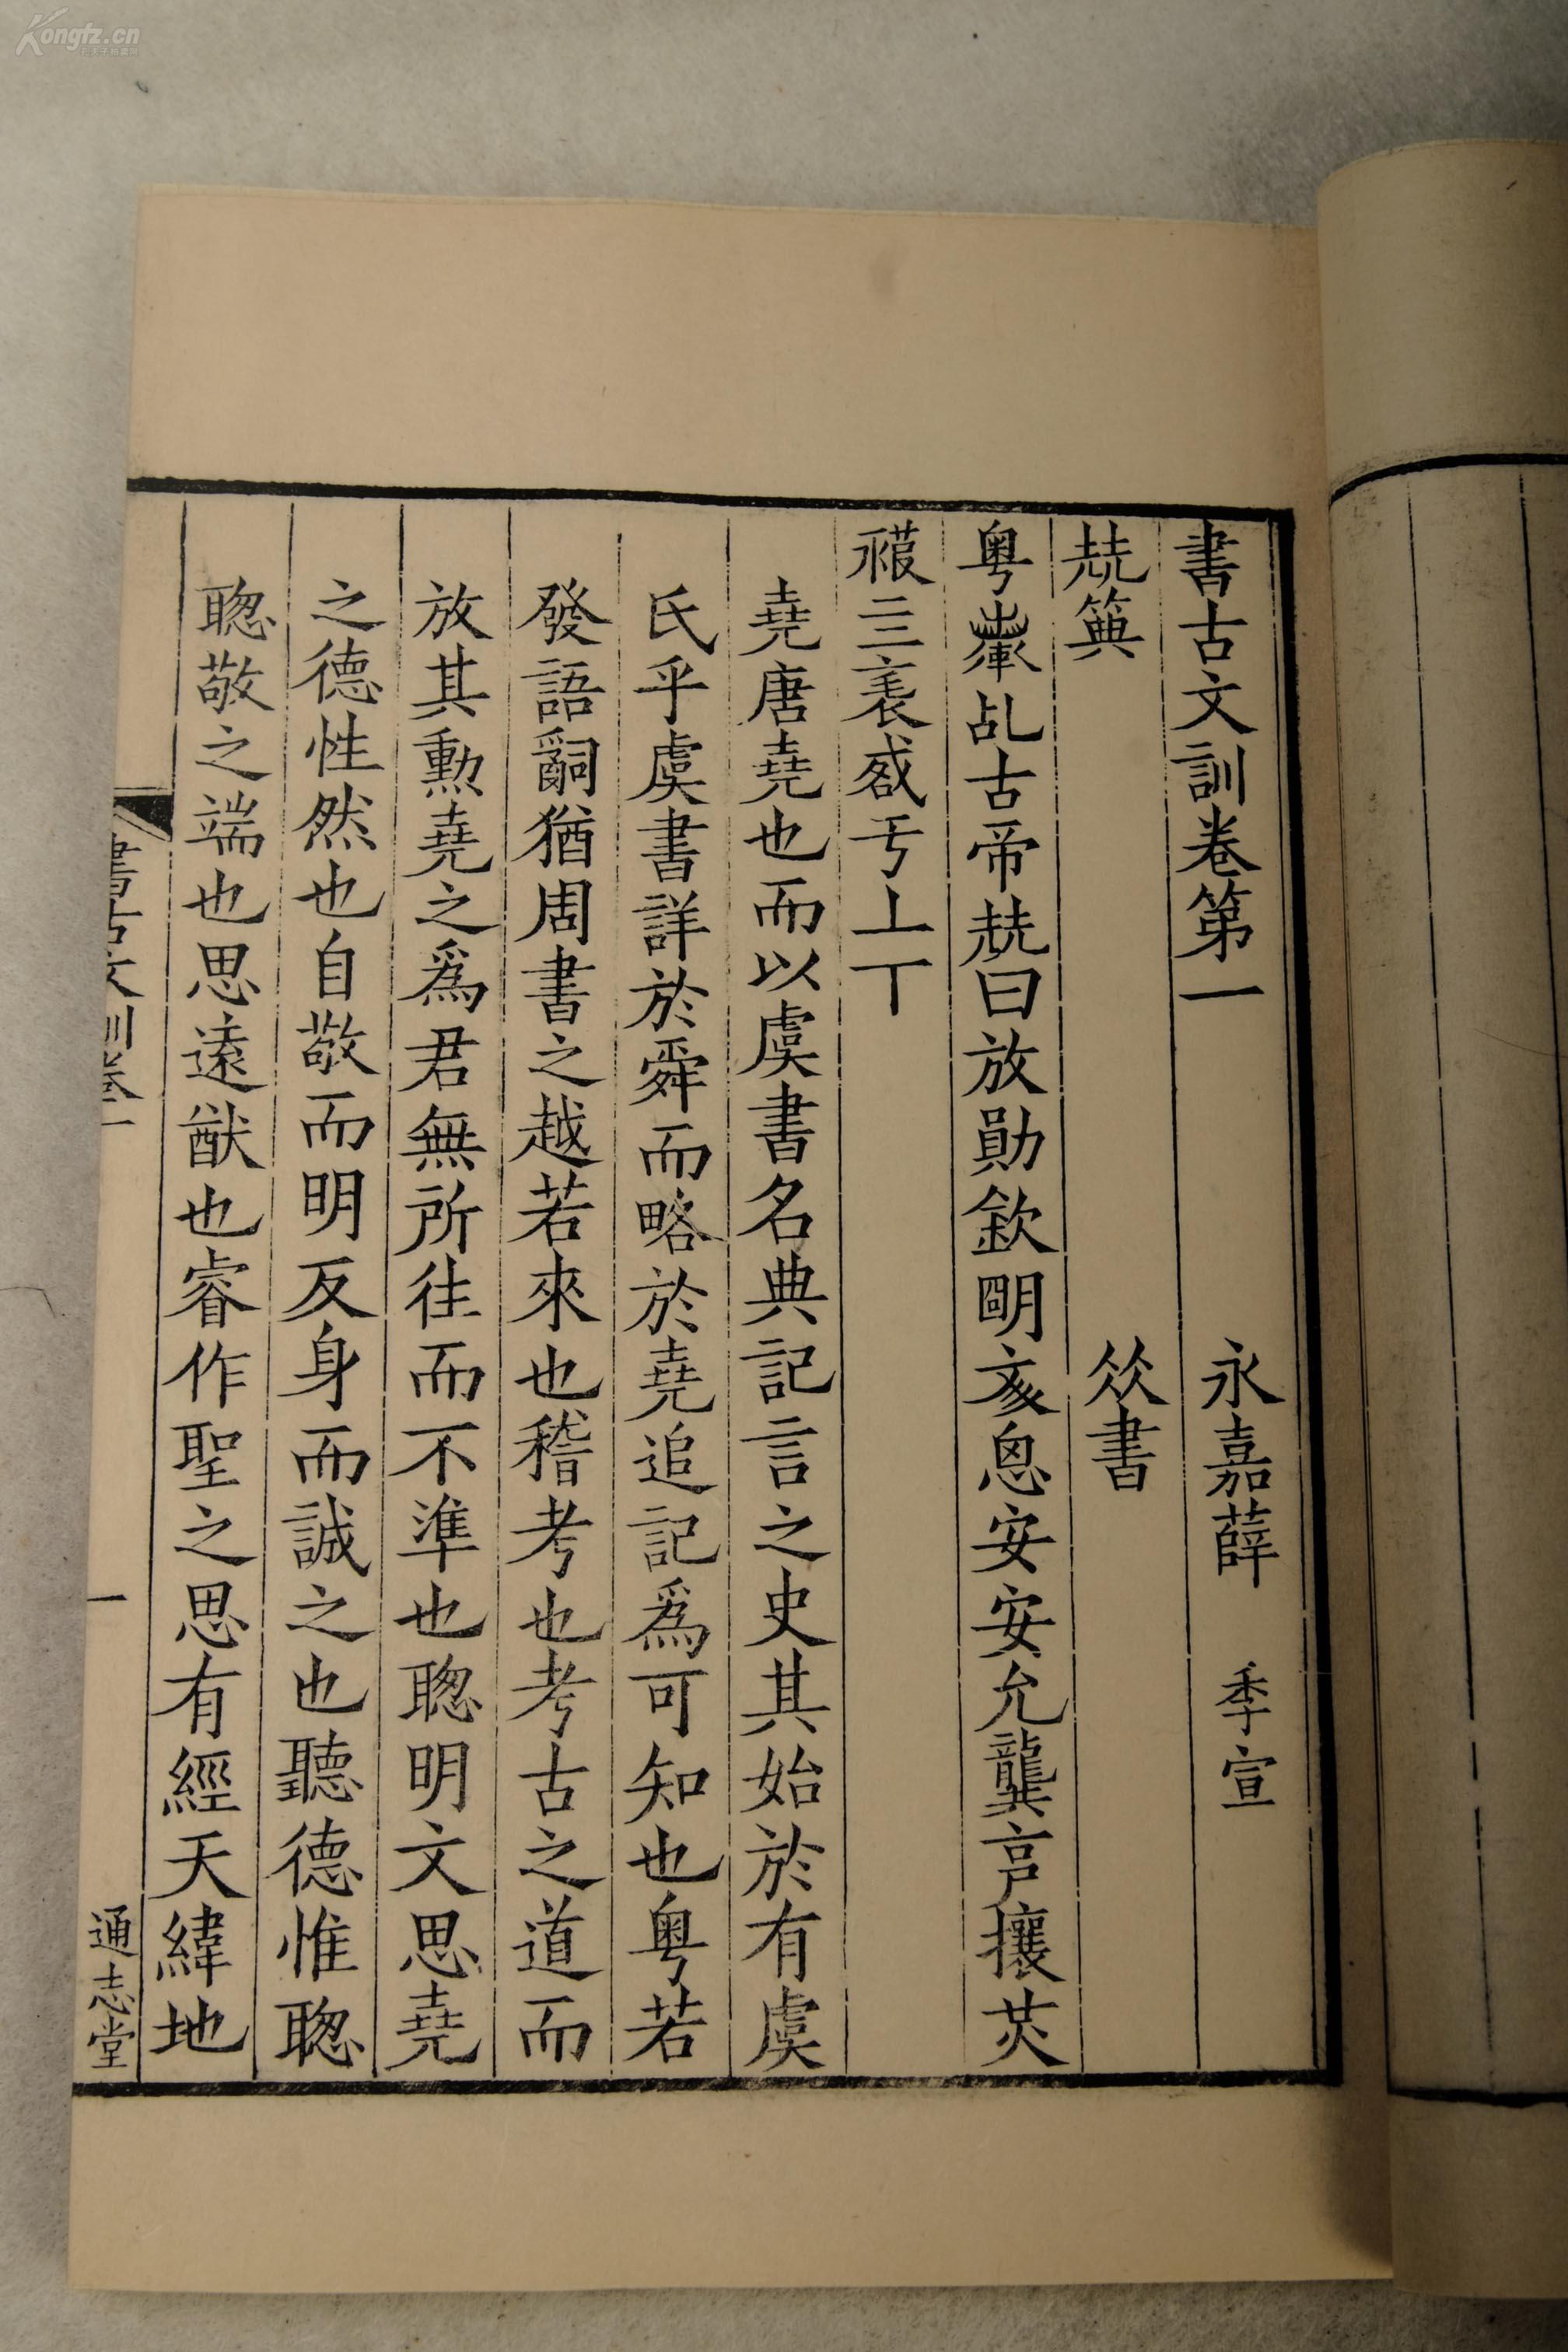 書古文訓卷第一 永嘉薛 季宣
𡋰籅 㒸書
粤𡴎乩古帝𡋰曰放勛欽朙亥恖安安允龔亯攘炗
䙚亖𧚍𢦟亐丄丅
堯唐堯也而以虞書名典記言之史其始於有虞
氏乎虞書詳於舜而略於堯追記爲可知也粤若
發語辭猶周書之越若來也稽考也考古之道而
放其勲堯之爲君無所往而不準也聰明文思堯
之德性然也自敬而明反身而誠之也聽德惟聰
聰敬之端也思遠猷也睿作聖之思有經天緯地
書古文訓卷一
一
通志堂
Kongfz.cn